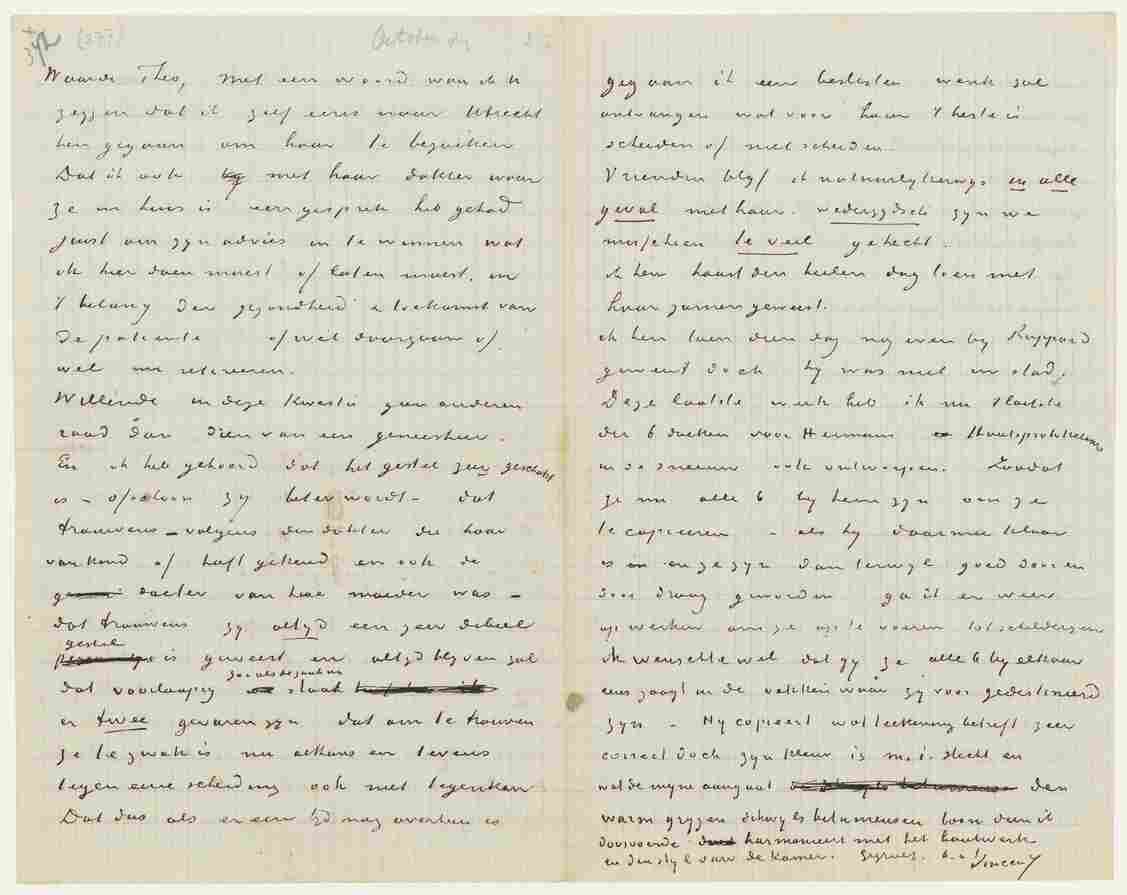 (377) October 84 2
Waarde Theo, Met een woord wou ik U
zeggen dat ik zelf eens naar Utrecht
ben gegaan om haar te bezoeken
Dat ik ook met haar dokter waar
ze in huis is een gesprek heb gehad
juist om zijn advies in te winnen wat
ik hier doen moest of laten moest, in
't belang der gezondheid & toekomst van
de patiente ofwel doorgaan of
wel me retireren.
Willende in deze kwestie geen anderen
raad dan dien van een geneesheer.
En ik heb gehoord dat het gestel zeer geschokt
is – ofschoon zij beter wordt – dat
trouwens – volgens den dokter die haar
van kind af heeft gekend en ook de
docter van hare moeder was –
dat trouwens zij altijd een zeer debiel
gestel
is geweest en altijd blijven zal
zooals de zaak nu
dat voorloopig staat
er twee gevaren zijn dat om te trouwen
ze te zwak is nu althans en tevens
tegen eene scheiding ook niet tegenkan
Dat dus als er een tijd nog overheen is
gegaan ik een beslisten wenk zal
ontvangen wat voor haar 't beste is
scheiden of niet scheiden.
Vrienden blijf ik natuurlijkerwijs in alle
geval met haar. wederzijdsch zijn we
misschien te veel gehecht.
ik ben haast den heelen dag toen met
haar zamen geweest.
ik ben toen dien dag nog even bij Rappard
geweest doch hij was niet in stad.
Deze laatste week heb ik nu 't laatste
der 6 doeken voor Hermans Houtsprokkelaars
in de sneeuw ook ontworpen. Zoodat
ze nu alle 6 bij hem zijn om ze
te copieeren – als hij daarmee klaar
is en ze zijn dan terwijl goed door en
door droog geworden ga ik er weer
op werken om ze op te voeren tot schilderijen
ik wenschte wel dat gij ze alle 6 bij elkaar
eens zaagt in de vakken waar zij voor gedestineerd
zijn – Hij copieert wat teekening betreft zeer
correct doch zijn kleur is m.i. slecht en
wat de mijne aangaat den
warm grijzen schraler betimmensen toon dien ik
doorvoerde harmonieert met het houtwerk
en den stijl van de kamer. gegroet. b. à t.
Vincent